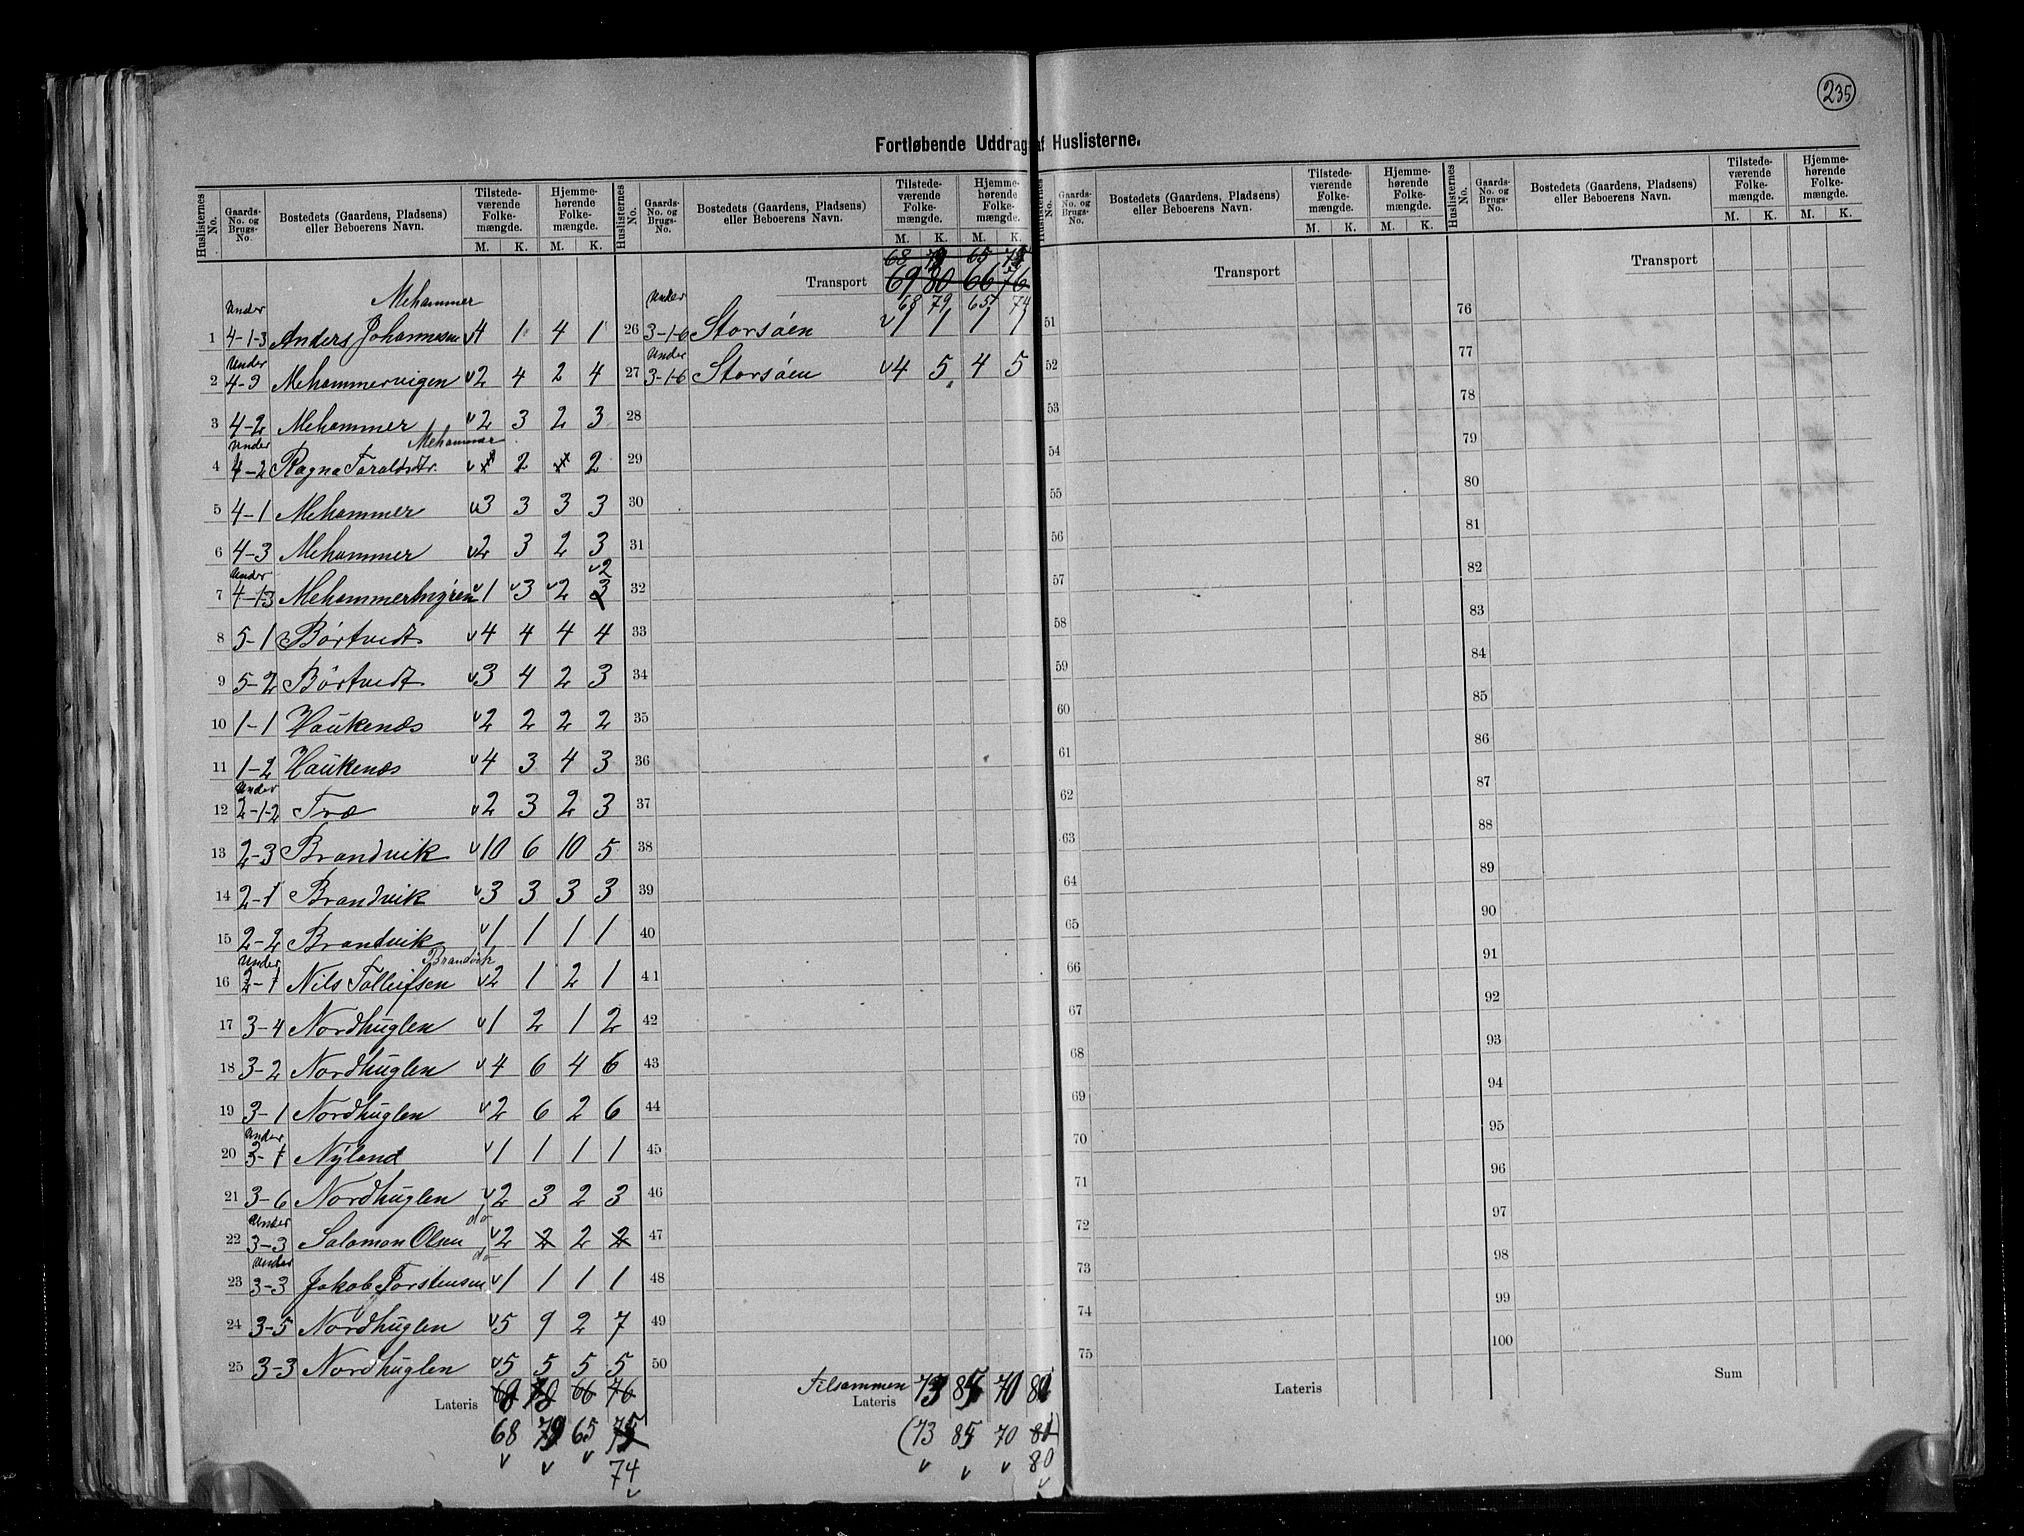 235
Fortløbende Uddrag af Huslisterne.
Huslisternes No. | Gaards-No. og Brugs-No. | Bostedets (Gaardens, Pladsens) eller Beboerens Navn. | Tilstedeværende Folkemængde. M. K. | Hjemmehørende Folkemængde. M. K.
Mehammer
1 Under 4-1-3 Anders Johannesen v4 1 4 1
2 Under 4-3 Mehammervigen v2 4 2 4
3 4-2 Mehammer v2 3 2 3
Mehammer
4 Under 4-2 Ragna Taraldsdtr. v 2 2
5 4-1 Mehammer v3 3 3 3
6 4-3 Mehammer v2 3 2 3
v2
7 Under 4-1-3 v1 v3 v2 3
8 5-1 Börtvedt v4 4 4 4
9 5-2 Börtvedt v3 4 2 3
10 1-1 Haukenæs v2 2 2 2
11 1-2 Haukenæs v4 3 4 3
12 Under 2-1-2 Træ v2 3 2 3
13 2-3 Brandvik v10 6 10 5
14 2-1 Brandvik v3 3 3 3
15 2-2 Brandvik v1 1 1 1
Brandvik
16 Under 2-1 Nils Tolleifsen v2 1 2 1
17 3-4 Nordhuglen v1 2 1 2
18 3-2 Nordhuglen v4 6 4 6
19 3-1 Nordhuglen v2 6 2 6
20 Under 3-1 Nyland v1 1 1 1
21 3-6 Nordhuglen v2 3 2 3
do
22 Under 3-3 Salamon Olsen v2 2 2 2
do
23 Under 3-3 Jakob Torstensen v1 1 1 1
24 3-5 Nordhuglen v5 9 2 7
25 3-3 Nordhuglen v5 5 5 5
Lateris 68 78 66 76
68 79 65 75
v v v 74
v
Huslisternes No. | Gaards-No. og Brugs-No. | Bostedets (Gaardens, Pladsens) eller Beboerens Navn. | Tilstedeværende Folkemængde. M. K. | Hjemmehørende Folkemængde. M. K.
68 79 65 75
Transport 69 80 66 76
68 79 65 74
26 Under 3-1-6 Storsöen v1 1 1 1
27 Under 3-1-6 Storsöen v4 5 4 5
28
29
30
31
32
33
34
35
36
37
38
39
40
41
42
43
44
45
46
47
48
49
50
Tilsammen
Lateris 73 85 70 81
(73 85 70 81)
v v v 80
v
Huslisternes No. | Gaards-No. og Brugs-No. | Bostedets (Gaardens, Pladsens) eller Beboerens Navn. | Tilstedeværende Folkemængde. M. K. | Hjemmehørende Folkemængde. M. K.
Transport
51
52
53
54
55
56
57
58
59
60
61
62
63
64
65
66
67
68
69
70
71
72
73
74
75
Lateris
Huslisternes No. | Gaards-No. og Brugs-No. | Bostedets (Gaardens, Pladsens) eller Beboerens Navn. | Tilstedeværende Folkemængde. M. K. | Hjemmehørende Folkemængde. M. K.
Transport
76
77
78
79
80
81
82
83
84
85
86
87
88
89
90
91
92
93
94
95
96
97
98
99
100
Sum